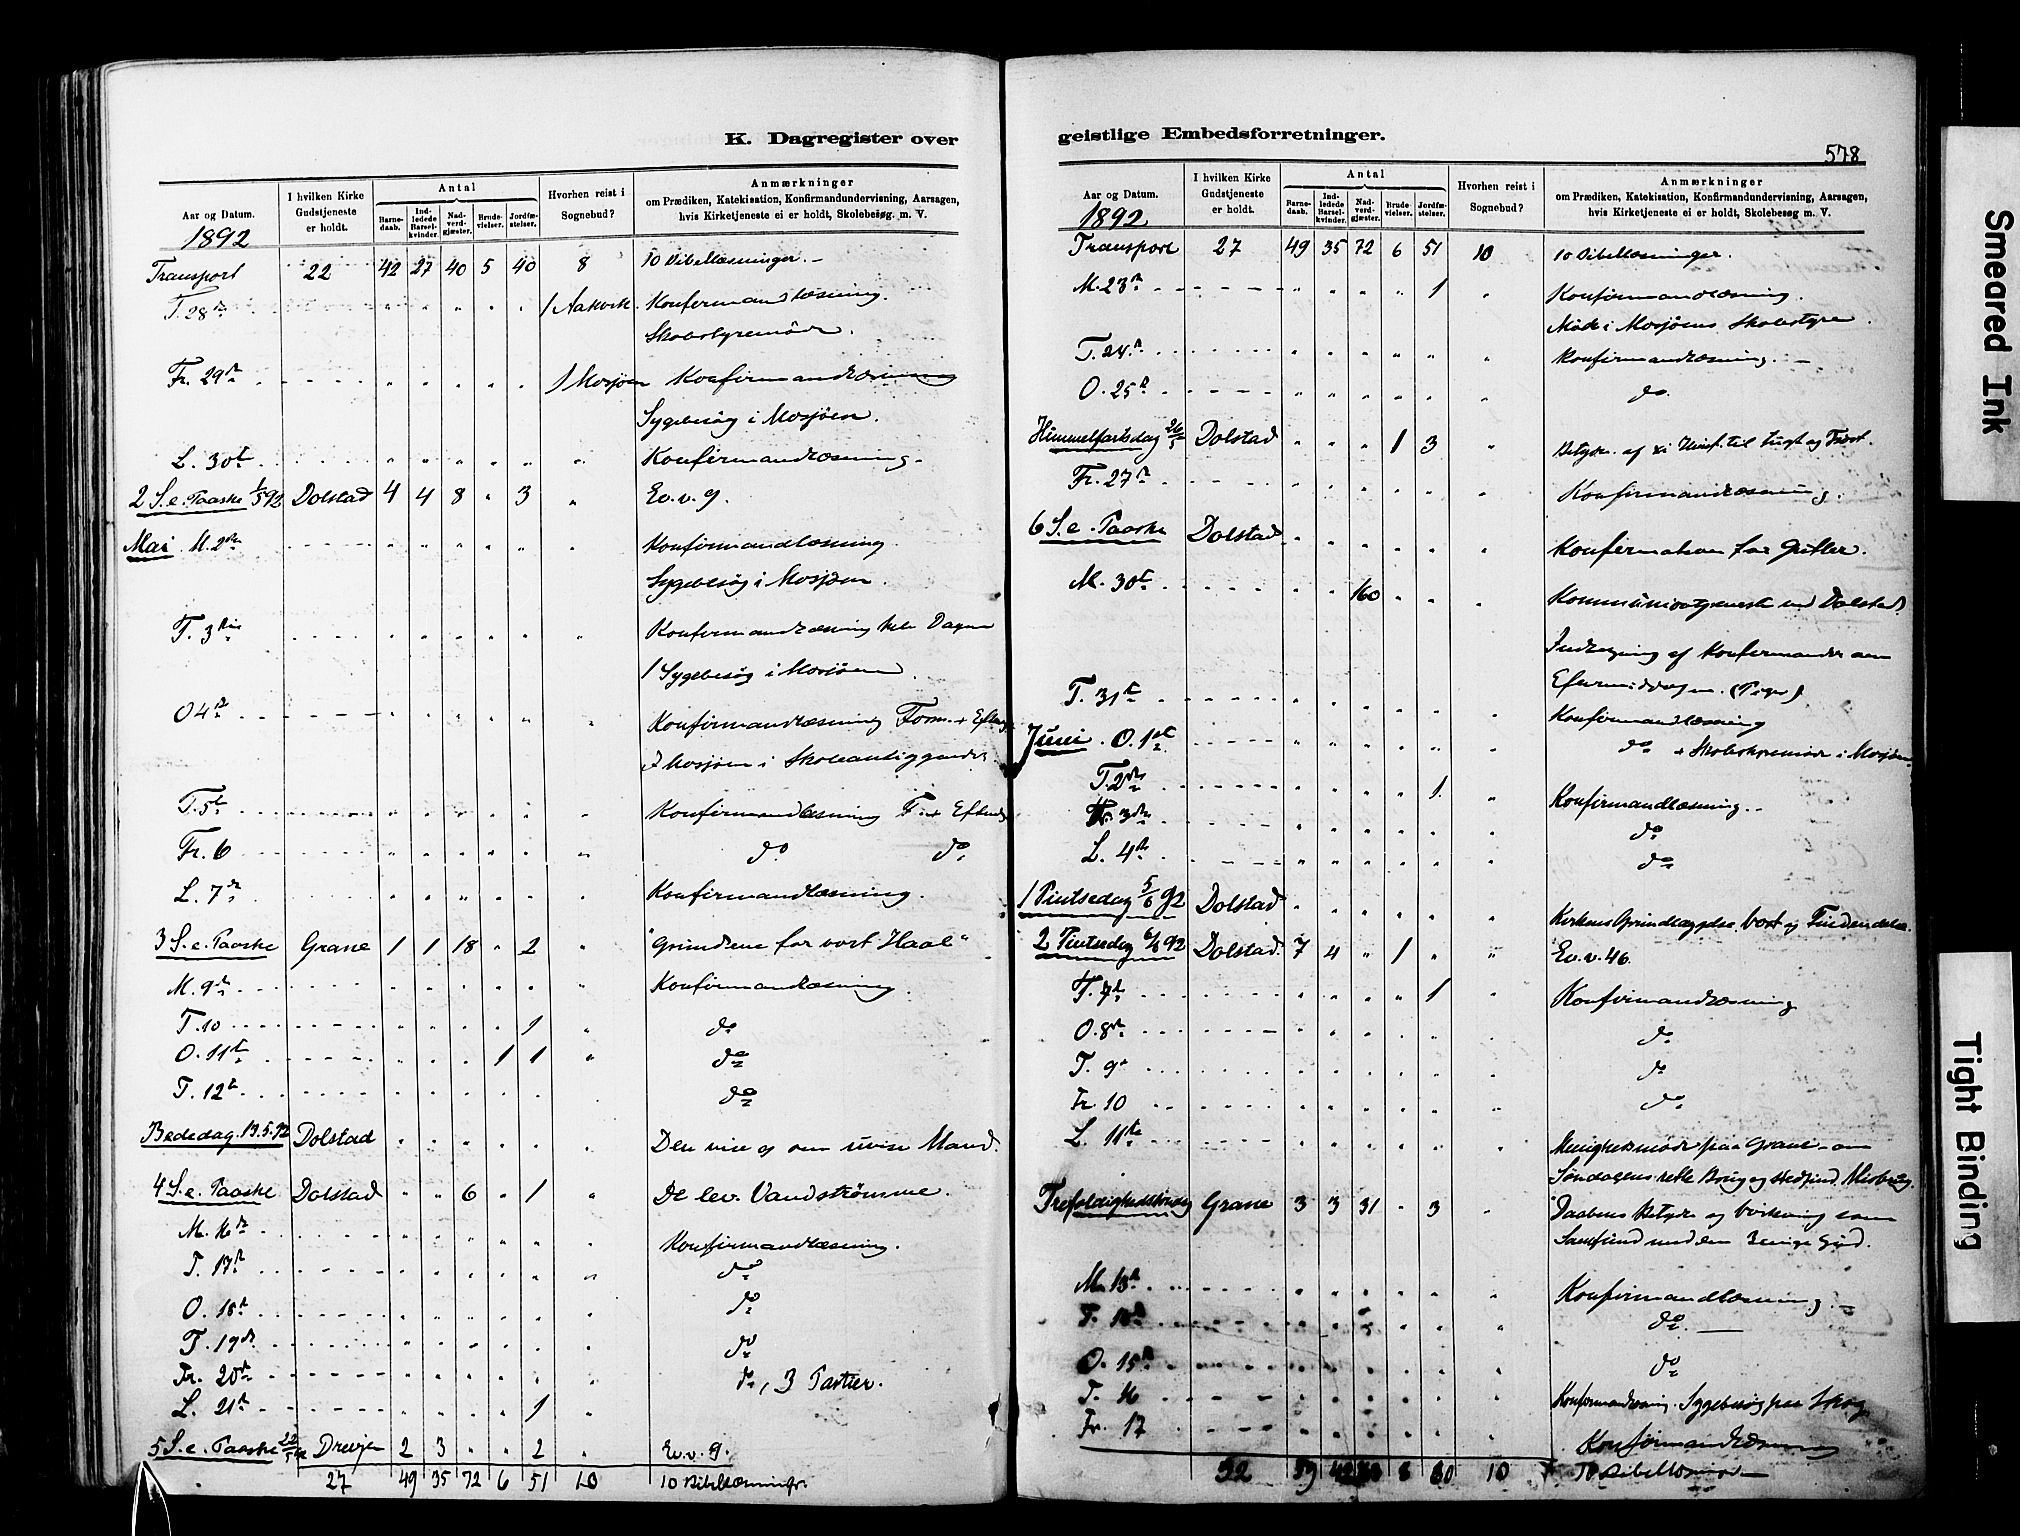 K. Dagregister over
Aar og Datum.
1892
I hvilken Kirke
Gudstjeneste
er holdt.
Antal
Barne-
daab.
Ind-
ledede
Barsel-
kvinder.
Nad-
verd-
gjæster.
Brude-
vielser.
Jordfæ-
stelser.
Hvorhen reist i
Sognebud?
Anmærkninger
om Prædiken, Katekisation, Konfirmandundervisning, Aarsagen,
hvis Kirketjeneste ei er holdt, Skolebesøg m. V.
Transport 22 42 27 40 5 40 8 10 Bibellæsninger.
T. 28de 1 Aakvik. Konfirmandlæsning.
Skolestyremöde.
Fr. 29de 1 Mosjøen Konfirmandlæsning
Sygebesög i Mosjöen.
L. 30te Konfirmandlæsning.
2 S. e. Paaske 1/5 92 Dolstad 4 4 8 " 3 " Ev. v. 9.
Mai M. 2den Konfirmandlæsning
Sygebesög i Mosjøen.
T. 3die Konfirmandlæsning hele Dagen
1 Sygebesög i Mosjöen.
O 4de Konfirmandlæsning Form. + Efterm.
I Mosjøen i Skoleanliggender
T. 5te Konfirmandlæsning F. + Efterm.
Fr. 6 do do
L. 7de Konfirmandlæsning.
3 S. e. Paaske Grane 1 1 18 " 2 " "Grundene for vort Haab"
M. 9de Konfirmandlæsning.
T. 10 1 do
O. 11te 1 1 do
T. 12te do
Bededag. 13.5.92 Dolstad Den vise og den uvise Mand.
4 S. e. Paaske Dolstad " " 6 " 1 " De lev. Vandströmme.
M. 16de Konfirmandlæsning.
T. 17de do
O. 18de do
T. 19de do
Fr. 20de do, 3 Partier.
L. 21de 1
5 S. e. Paaske 22/5 92 Drevjen 2 3 " " 2 " Ev. v. 9.
27 49 35 72 6 51 10 10 Bibellæsninger.
geistlige Embedsforretninger.
578
Aar og Datum.
1892
I hvilken Kirke
Gudstjeneste
er holdt.
Antal
Barne-
daab.
Ind-
ledede
Barsel-
kvinder.
Nad-
verd-
gjæster.
Brude-
vielser.
Jordfæ-
stelser.
Hvorhen reist i
Sognebud?
Anmærkninger
om Prædiken, Katekisation, Konfirmandundervisning, Aarsagen,
hvis Kirketjeneste ei er holdt, Skolebesøg m. V.
Transport 27 49 35 72 6 51 10 10 Bibellæsninger.
M. 23de 1 Konfirmandlæsning.
Møde i Mosjøens Skolestyre.
T. 24de Konfirmandlæsning.
O. 25de do.
Himmelfartsdag 26/5 Dolstad " " " 1 3 " Betydn. af Xi Himf. til Lugt og Trøst.
Fr. 27de Konfirmandlæsning.
6 S. e. Paaske Dolstad Konfirmation for Gutter.
M. 30te 160 Kommuniontjeneste ved Dolstad.
Indtegning af Konfirmander om
Eftermiddagen. (Piger).
T. 31te Konfirmandlæsning
Juni. O. 1ste do + Skolestyremöde i Mosjøen
T. 2den 1. Konfirmandlæsning.
Fr. 3die do
L. 4de do
1 Pintsedag 5/6 92 Dolstad Kirkens Grundlæggelse
2 Pintsedag 6/6 92 Dolstad. 7 4 " 1 " " Ev. v. 46.
T. 7de 1 Konfirmandlæsning
O. 8de do
T. 9de do
Fr. 10 do
L. 11te Menighedsmöde paa Grane om
Søndagens rette Brug og
Trefoldighedssöndag Grane 3 3 31 " 3 " Daabens Betydn og Virkning som
Samfund med den 3enige Gud.
M. 13de Konfirmandlæsning.
T. 14de do.
O. 15de do
T. 16 Konfirmandlæsning. Sygebesög paa Skog
Fr. 17 Konfirmandlæsning
32 59 10 10 Bibellæsninger
Smeared Ink
Tight Binding